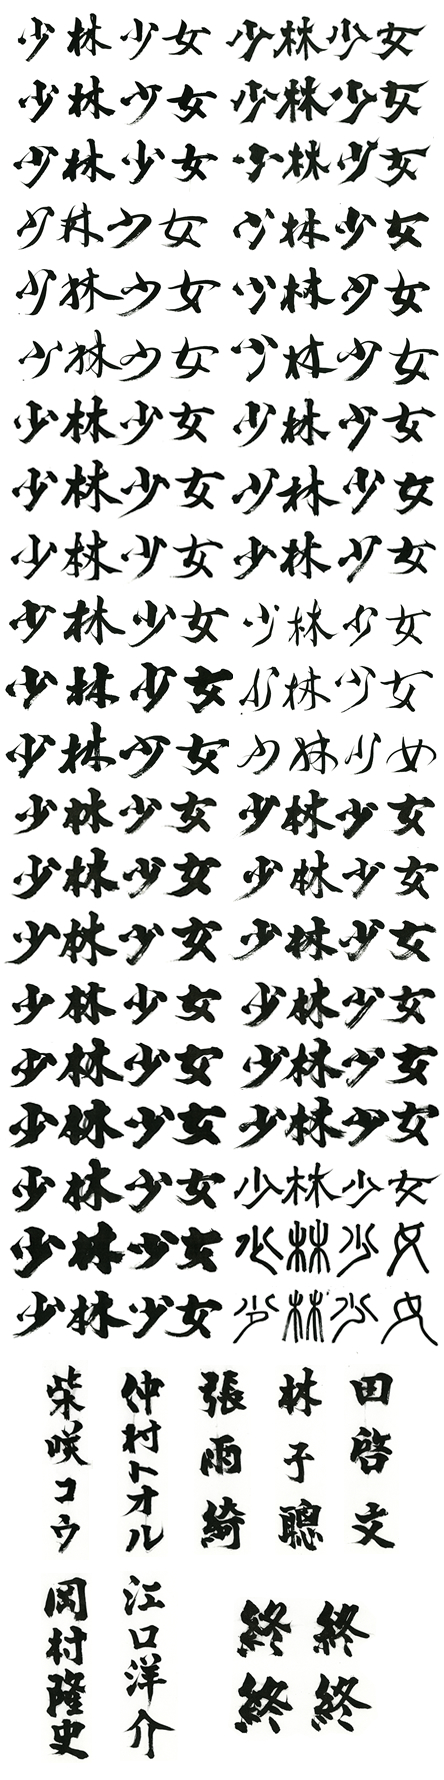 少林少女 少林少女
少林少女 少林少女
少林少女 少林少女
少林少女 少林少女
少林少女 少林少女
少林少女 少林少女
少林少女 少林少女
少林少女 少林少女
少林少女 少林少女
少林少女 少林少女
少林少女 少林少女
少林少女 少林少女
少林少女 少林少女
少林少女 少林少女
少林少女 少林少女
少林少女 少林少女
少林少女 少林少女
少林少女 少林少女
少林少女 少林少女
少林少女 少林少女
少林少女 少林少女
田啓文
林子聰
張雨綺
仲村トオル
柴咲コウ
終終
終終
江口洋介
岡村隆史